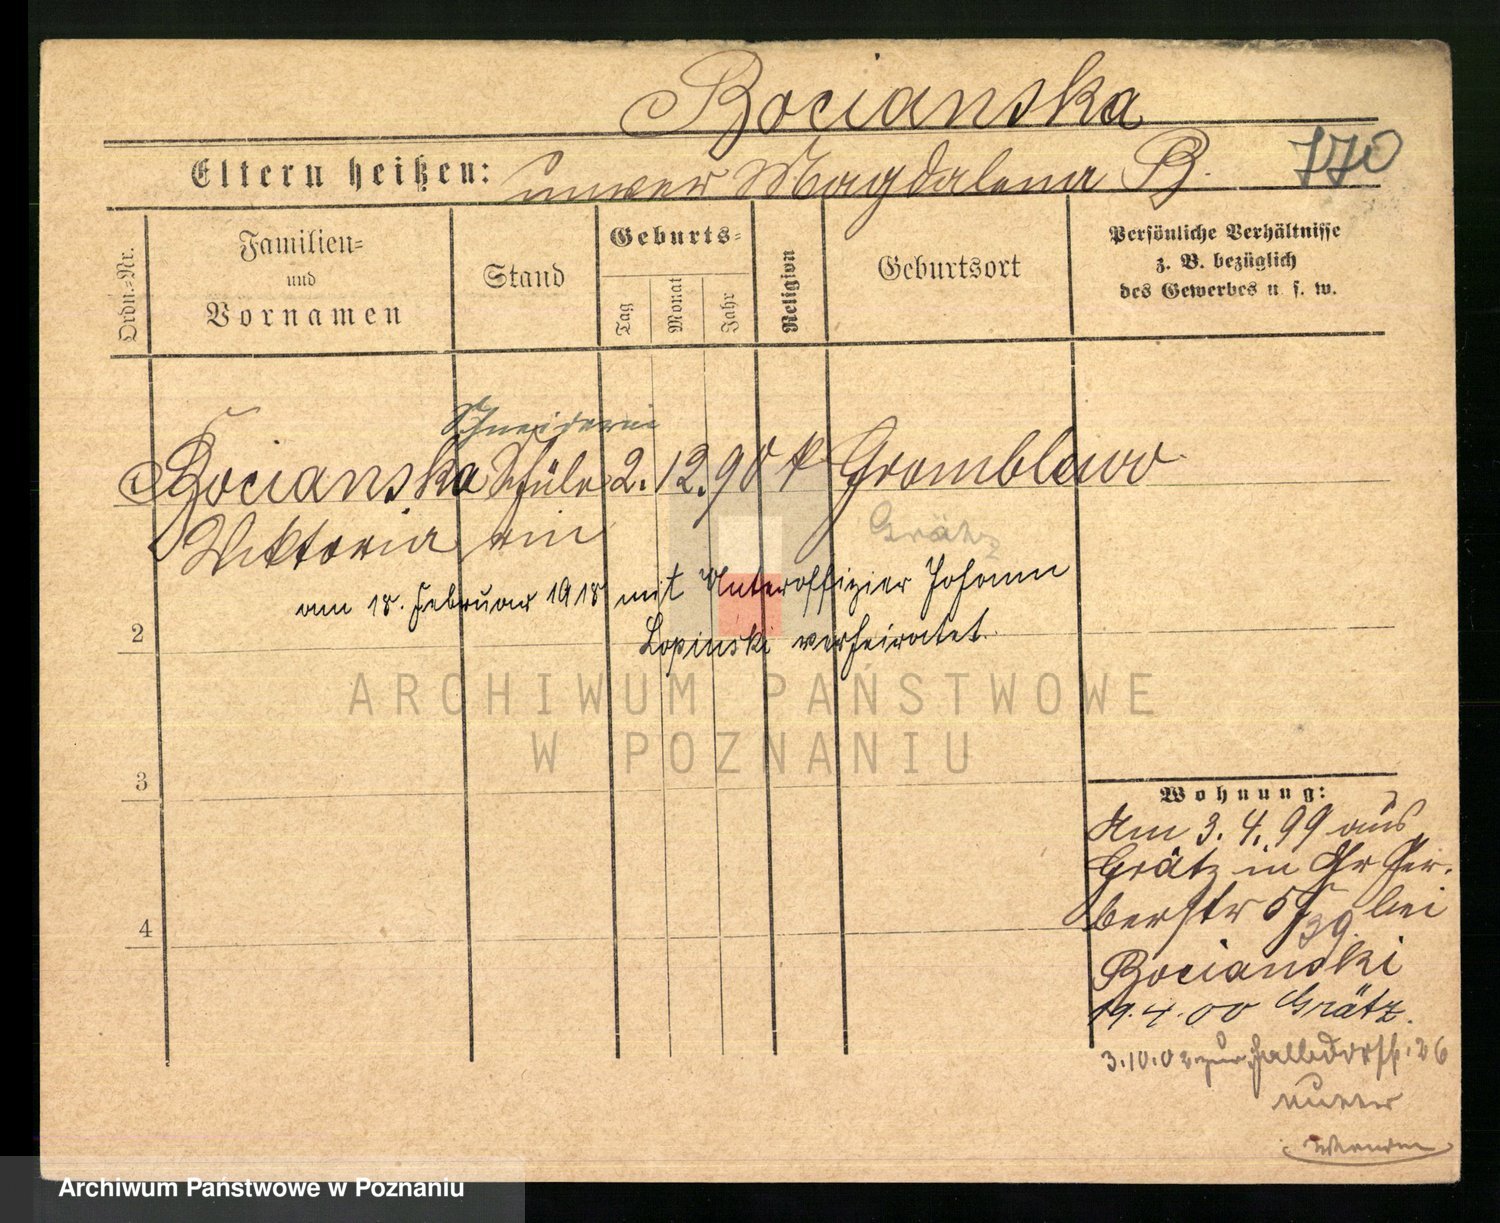 Bocianska
Eltern heißen: unver Magdalena B. 770
Ordn.-Nr.
Familien-
und
Vornamen
Stand
Geburts-
Tag
Monat
Jahr
Religion
Geburtsort
Persönliche Verhältnisse
z. B. bezüglich
des Gewerbes u. s. w.
Schneiderin
Bocianska Schüle 2. 12. 90 k Gromblewo
Viktoria rin Grätz
am 18. Februar 1918 mit Unteroffizier Johann
2 Lopinski verheiratet.
ARCHIWUM PAŃSTWOWE
W POZNANIU
3
Wohnung:
Am 3. 4. 99 aus
Grätz in Gr Ger-
berstr bei
39.
4
Bocianski
19. 4. 00 Grätz.
3.10.02 zur 26
Mutter
Wenden
Archiwum Państwowe w Poznaniu